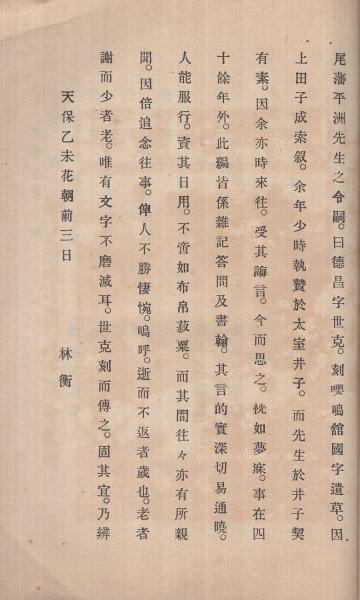 尾藩平洲先生之令嗣。曰德昌字世克。刻嚶鳴館國字遺草。因
上田子成索叙。余年少時執贄於太室井子。而先生於井子契
有素。因余亦時來往。受其誨言。今而思之。恍如夢寐。事在四
十餘年外。此編皆係雜記答問及書翰。其言的實深切易通曉。
人能服行。資其日用。不啻如布帛菽粟。而其間往々亦有所親
聞。因倍追念往事。俾人不勝悽惋。嗚呼。逝而不返者歲也。老者
謝而少者老。唯有文字不磨滅耳。世克刻而傳之。固其宜。乃辨
天保乙未花朝前三日　林衡